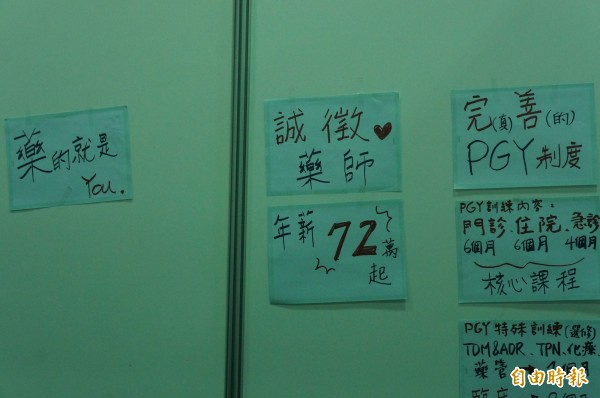 藥的就是
You.
誠徵♥
藥師
年薪 72萬
起
完(真)善(的)
PGY制度
PGY訓練內容。
門診.住院.急診
6個月 6個月 4個月
核心課程
PGY特殊訓練(選修)
TDM&ADR.TPN.化療
藥管
臨床
自由時報